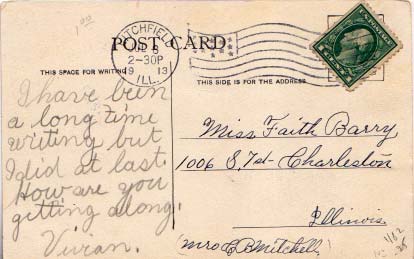 1.00
LITCHFIELD
2-30P
19 13
ILL.
POST CARD
THIS SPACE FOR WRITING
THIS SIDE IS FOR THE ADDRESS
I have been
a long time
writing but
I did at last.
How are you
getting along.
Vivian.
Miss Faith Barry
1006 S. 7st Charleston
Illinois
(Mrs C B Mitchell)